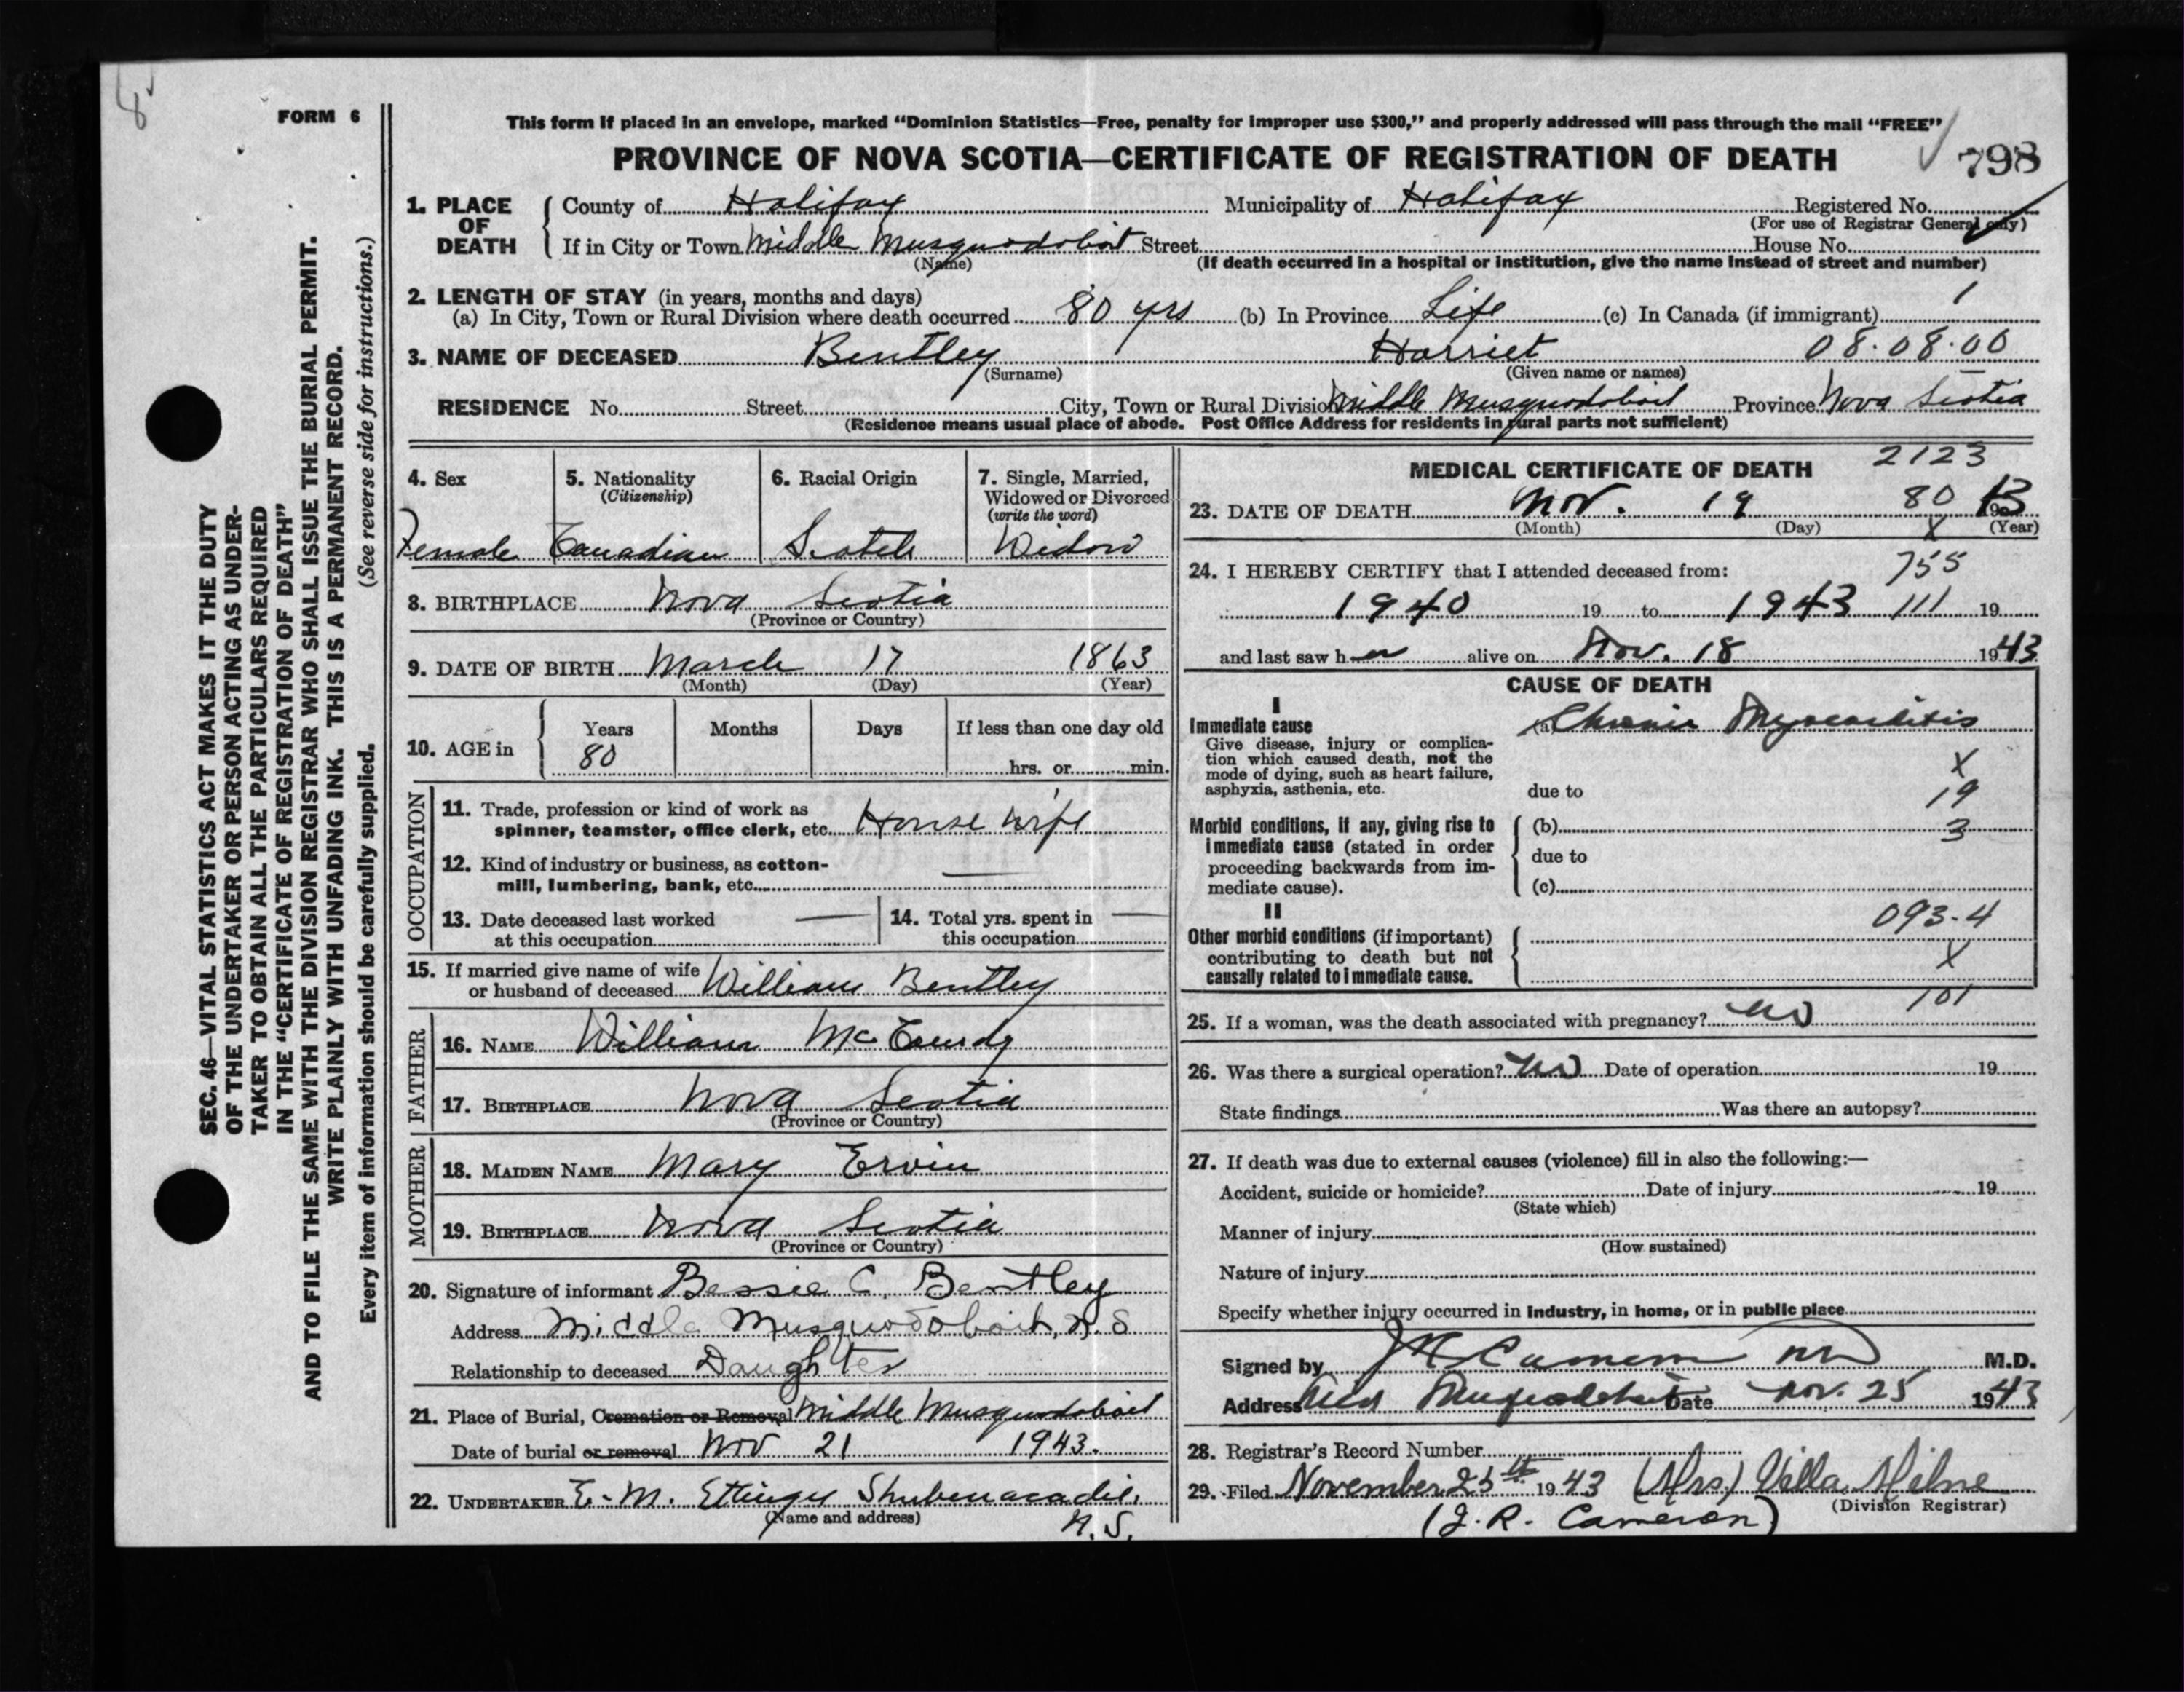 8
FORM 6
This form if placed in an envelope, marked “Dominion Statistics—Free, penalty for improper use $300,” and properly addressed will pass through the mail “FREE”
PROVINCE OF NOVA SCOTIA—CERTIFICATE OF REGISTRATION OF DEATH 798
1. PLACE OF DEATH
County of Halifax Municipality of Halifax Registered No.
(For use of Registrar General only)
If in City or Town Middle Musquodoboit Street House No.
(Name) (If death occurred in a hospital or institution, give the name instead of street and number)
2. LENGTH OF STAY (in years, months and days)
(a) In City, Town or Rural Division where death occurred 80 yrs (b) In Province Life (c) In Canada (if immigrant) 1
3. NAME OF DECEASED Bentley Harriet 08.08.00
(Surname) (Given name or names)
RESIDENCE No. Street City, Town or Rural Division Middle Musquodoboit Province Nova Scotia
(Residence means usual place of abode. Post Office Address for residents in rural parts not sufficient)
4. Sex
Female
5. Nationality
(Citizenship)
Canadian
6. Racial Origin
Scotch
7. Single, Married,
Widowed or Divorced
(write the word)
Widow
8. BIRTHPLACE Nova Scotia
(Province or Country)
9. DATE OF BIRTH March 17 1863
(Month) (Day) (Year)
10. AGE in
Years Months Days If less than one day old
80 hrs. or min.
OCCUPATION
11. Trade, profession or kind of work as
spinner, teamster, office clerk, etc. House wife
12. Kind of industry or business, as cotton-
mill, lumbering, bank, etc. —
13. Date deceased last worked —
at this occupation
14. Total yrs. spent in —
this occupation
15. If married give name of wife
or husband of deceased William Bentley
FATHER
16. NAME William McCurdy
17. BIRTHPLACE Nova Scotia
(Province or Country)
MOTHER
18. MAIDEN NAME Mary Ervin
19. BIRTHPLACE Nova Scotia
(Province or Country)
20. Signature of informant Bessie C. Bentley
Address Middle Musquodoboit, N.S
Relationship to deceased Daughter
21. Place of Burial, Cremation or Removal Middle Musquodoboit
Date of burial or removal Nov 21 1943.
22. UNDERTAKER E. M. Ettinger Shubenacadie,
(Name and address) N.S.
MEDICAL CERTIFICATE OF DEATH 2123
23. DATE OF DEATH Nov. 19 80
(Month) (Day) X (Year)
24. I HEREBY CERTIFY that I attended deceased from: 755
1940 19 to 1943 111 19
and last saw her alive on Nov. 18 1943
CAUSE OF DEATH
I
Immediate cause (a) Chronic Myocarditis
Give disease, injury or complica-
tion which caused death, not the
mode of dying, such as heart failure,
asphyxia, asthenia, etc.
X
due to 19
Morbid conditions, if any, giving rise to
immediate cause (stated in order
proceeding backwards from im-
mediate cause).
(b) 3
due to
(c)
II
093-4
Other morbid conditions (if important)
contributing to death but not
causally related to immediate cause.
X
101
25. If a woman, was the death associated with pregnancy? no
26. Was there a surgical operation? no Date of operation 19
State findings Was there an autopsy?
27. If death was due to external causes (violence) fill in also the following:—
Accident, suicide or homicide? Date of injury 19
(State which)
Manner of injury
(How sustained)
Nature of injury
Specify whether injury occurred in industry, in home, or in public place
Signed by J R Cameron MD M.D.
Address Mid Musquodoboit Date Nov. 25 1943
28. Registrar's Record Number
29. Filed November 25th 1943 (Mrs) Villa Milne
(Division Registrar)
(J. R. Cameron)
SEC. 46—VITAL STATISTICS ACT MAKES IT THE DUTY
OF THE UNDERTAKER OR PERSON ACTING AS UNDER-
TAKER TO OBTAIN ALL THE PARTICULARS REQUIRED
IN THE “CERTIFICATE OF REGISTRATION OF DEATH”
AND TO FILE THE SAME WITH THE DIVISION REGISTRAR WHO SHALL ISSUE THE BURIAL PERMIT.
WRITE PLAINLY WITH UNFADING INK. THIS IS A PERMANENT RECORD.
Every item of information should be carefully supplied. (See reverse side for instructions.)